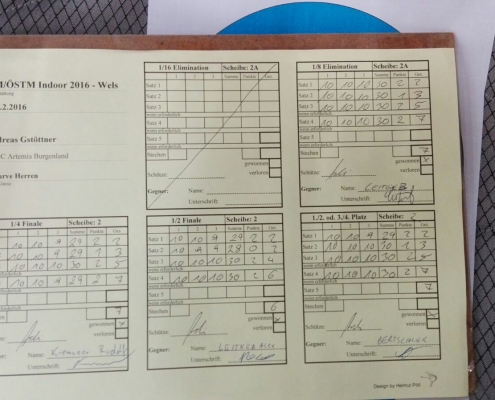 M/ÖSTM Indoor 2016 - Wels
.2.2016
dreas Gstöttner
C Artemis Burgenland
Herren
1/16 Elimination Scheibe: 2A
1 2 3 Summe Punkte Ges.
Satz 1
Satz 2
Satz 3
wenn erforderlich
Satz 4
wenn erforderlich
Satz 5
Stechen
gewonnen
verloren
Schütze:
Gegner: Name:
Unterschrift:
1/8 Elimination Scheibe: 2A
1 2 3 Summe Punkte Ges.
Satz 1 10 10 10 30 2 2
Satz 2 10 10 10 30 1 3
Satz 3 10 10 10 30 2 5
wenn erforderlich
Satz 4 10 10 10 30 2 7
wenn erforderlich
Satz 5
Stechen 7
gewonnen x
verloren
Schütze:
Gegner: Name:
Unterschrift:
1/4 Finale Scheibe: 2
1 2 3 Summe Punkte Ges.
10 10 9 29 2 2
10 10 9 29 1 3
10 10 10 30 2 5
10 10 9 29 2 7
7
gewonnen x
verloren
Name:
Unterschrift:
1/2 Finale Scheibe: 2
1 2 3 Summe Punkte Ges.
Satz 1 10 10 9 29 2 2
Satz 2 10 9 9 28 0 2
Satz 3 10 10 10 30 2 4
wenn erforderlich
Satz 4 10 10 10 30 2 6
wenn erforderlich
Satz 5
Stechen 6
gewonnen x
verloren
Schütze:
Gegner: Name:
Unterschrift:
1./2. od. 3./4. Platz Scheibe: 2
1 2 3 Summe Punkte Ges.
Satz 1 10 10 9 29 2 2
Satz 2 10 10 10 30 1 3
Satz 3 10 10 10 30 2 5
wenn erforderlich
Satz 4 10 10 10 30 2 7
wenn erforderlich
Satz 5 7
Stechen
gewonnen x
verloren
Schütze:
Gegner: Name:
Unterschrift:
Design by Helmut Pöll